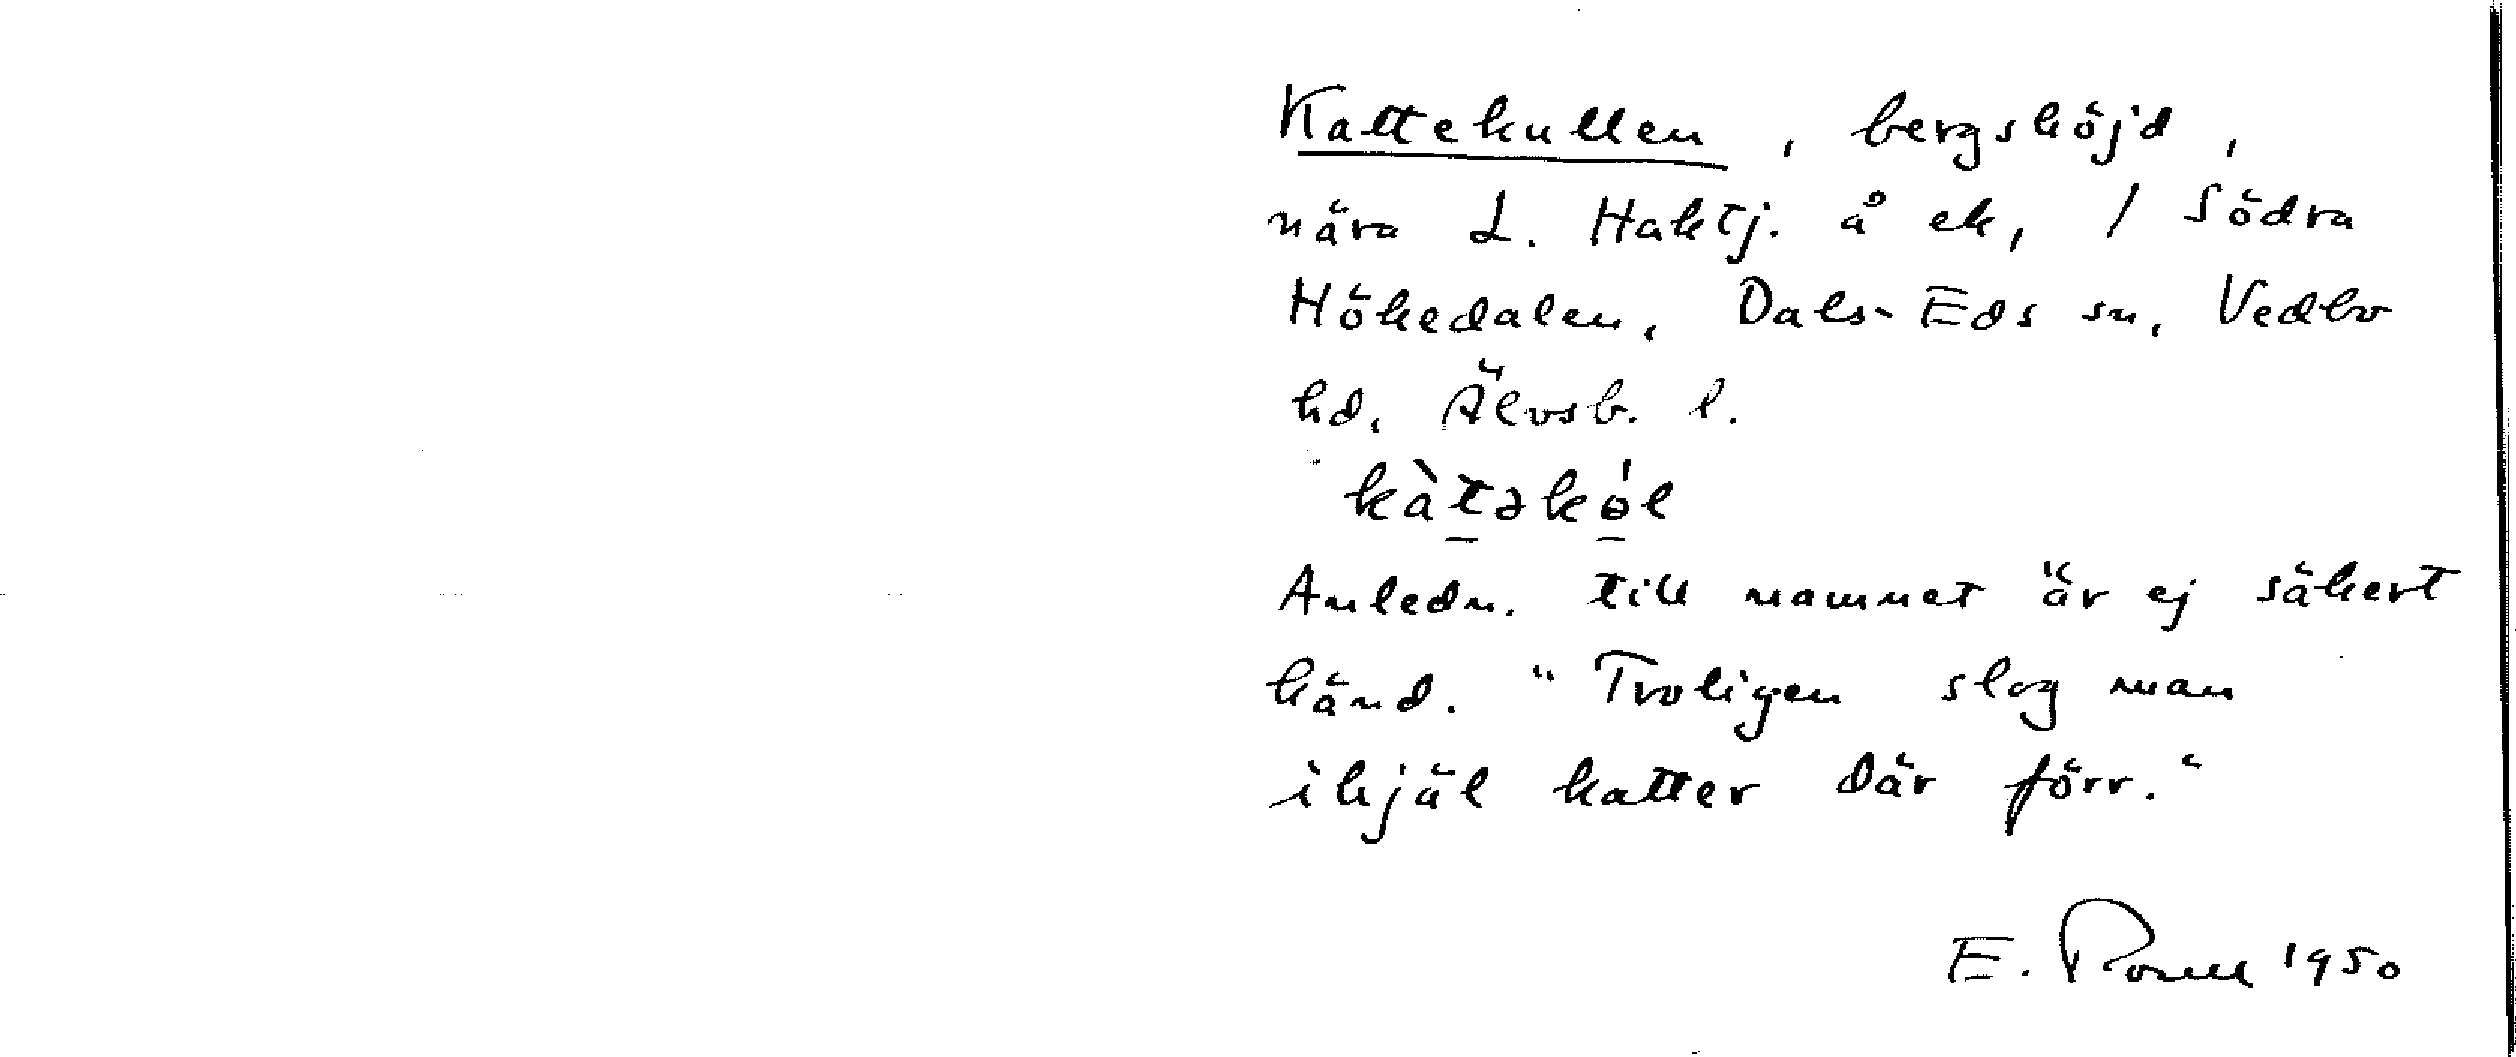 Kattekullen, bergshöjd,
nära L. Haktj. å ek, / Södra
Hökedalen, Dals-Eds sn, Vedbo
hd, Älvsb. l.
kàt̲əkó̲l
Anledn. till namnet är ej säkert
känd. "Troligen slog man
ihjäl katter där förr."
E. 1950